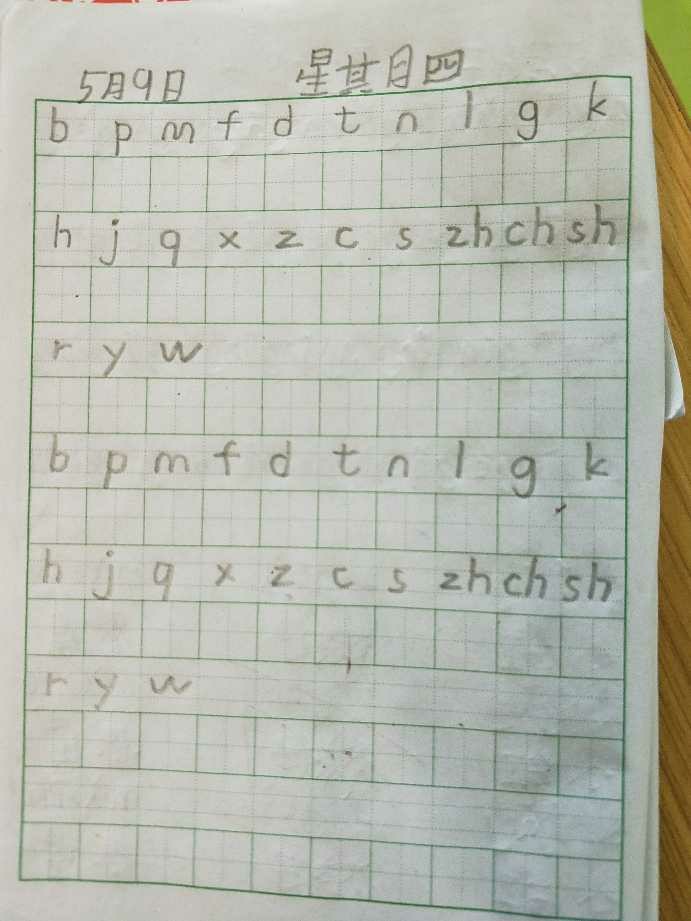 5月9日 星其月四
b p m f d t n l g k
h j q x z c s zh ch sh
r y w
b p m f d t n l g k
h j q x z c s zh ch sh
r y w